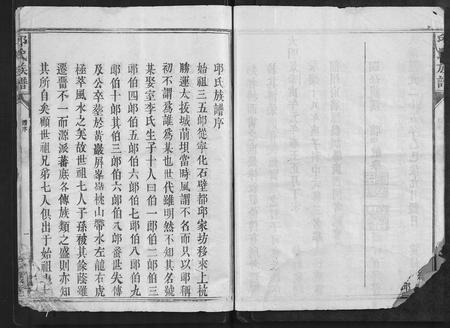 邱氏族譜序
始祖三五郎從寧化石壁都邱家坊移來上杭
勝運太拔城前坝當時風謂不名而只以郎稱
初不謂為誰為某也世代雖明然不知其名號
某娶室李氏生子十人曰伯一郎伯二郎伯三
郎伯四郎伯五郎伯六郎伯七郎伯八郎伯九
郎伯十郎其伯三郎伯六郎伯八郎番世失傳
及公卒塟於黃巖屏峯 桃山帶水左龍右虎
極萃風水之美故世祖七人子孫被其餘蔭雖
遷晋不一而源派蕃庶各傳族類之盛則亦知
其所自矣顧世祖兄弟七人俱出于始祖
邱氏族譜
譜序
一